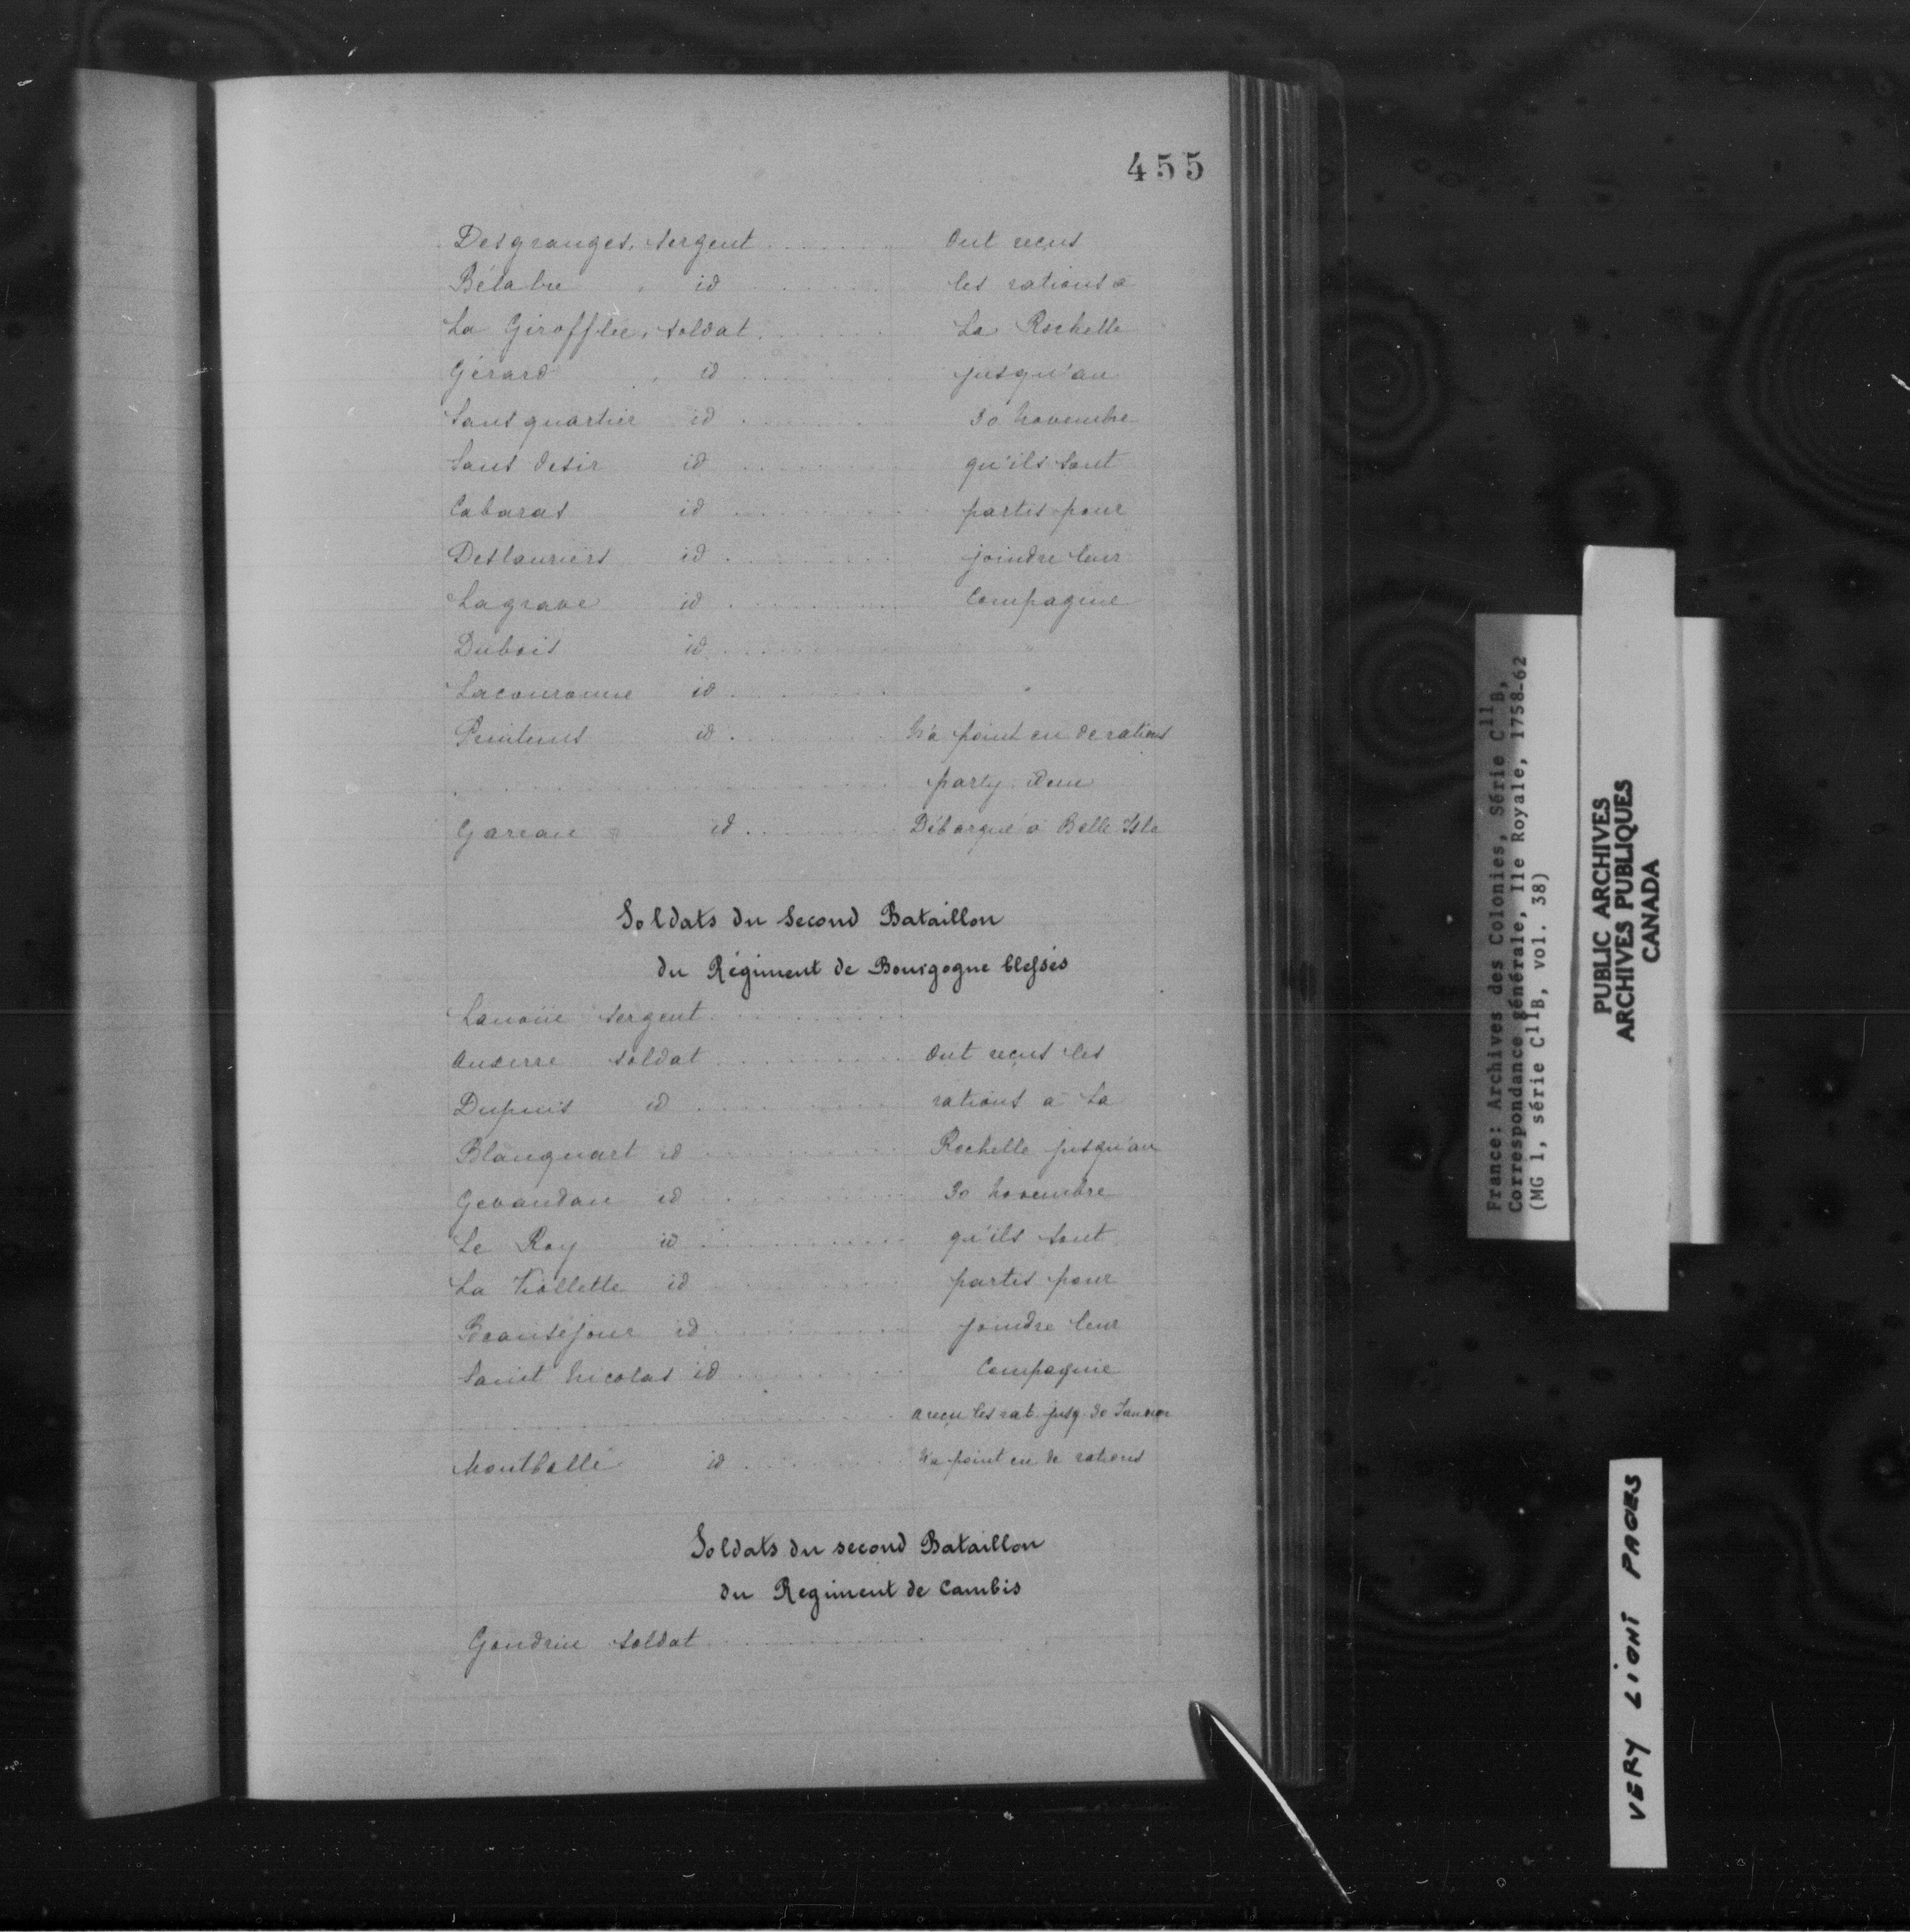 455
Desgranges, sergent ........ Ont reçus
Bélabre , id ........ les rations à
La Girofflée, soldat ........ La Rochelle
Gérard , id ........ jusqu'au
Sansquartier id ........ 30 Novembre
Sans desir id ........ qu'ils sont
Cabaras id ........ partis pour
Deslauriers id ........ joindre leur
Lagrave id ........ Compagnie
Dubois id ........ "
Lacouronne id ........ "
Printems id ........ N'a point eu de rations
........ party
Gareau id ........ Débarqué à Belle Isle
Soldats du Second Bataillon
du Régiment de Bourgogne blessés
Lanoüe sergent ........
Auxerre soldat ........ Ont reçus les
Dupuis id ........ rations à La
Blanquart id ........ Rochelle jusqu'au
Gevaudan id ........ 30 Novembre
Le Roy id ........ qu'ils sont
La Viollette id ........ partis pour
Beauséjour id ........ joindre leur
Saint Nicolas id ........ Compagnie
........ a reçu les rat. jusq. 30 Janvier
Montballé id ........ N'a point eu de rations
Soldats du second Bataillon
du Regiment de Cambis
Gondrin soldat ........
France: Archives des Colonies, Série C11B,
Correspondance générale, Ile Royale, 1758-62
(MG 1, série C11B, vol. 38)
PUBLIC ARCHIVES
ARCHIVES PUBLIQUES
CANADA
VERY LIGHT PAGES